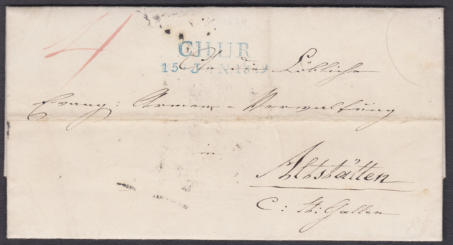 4
CHUR
15 JAN
An die Löbliche
Evang: Armen-Verwaltung
in
Altstätten
C: St. Gallen